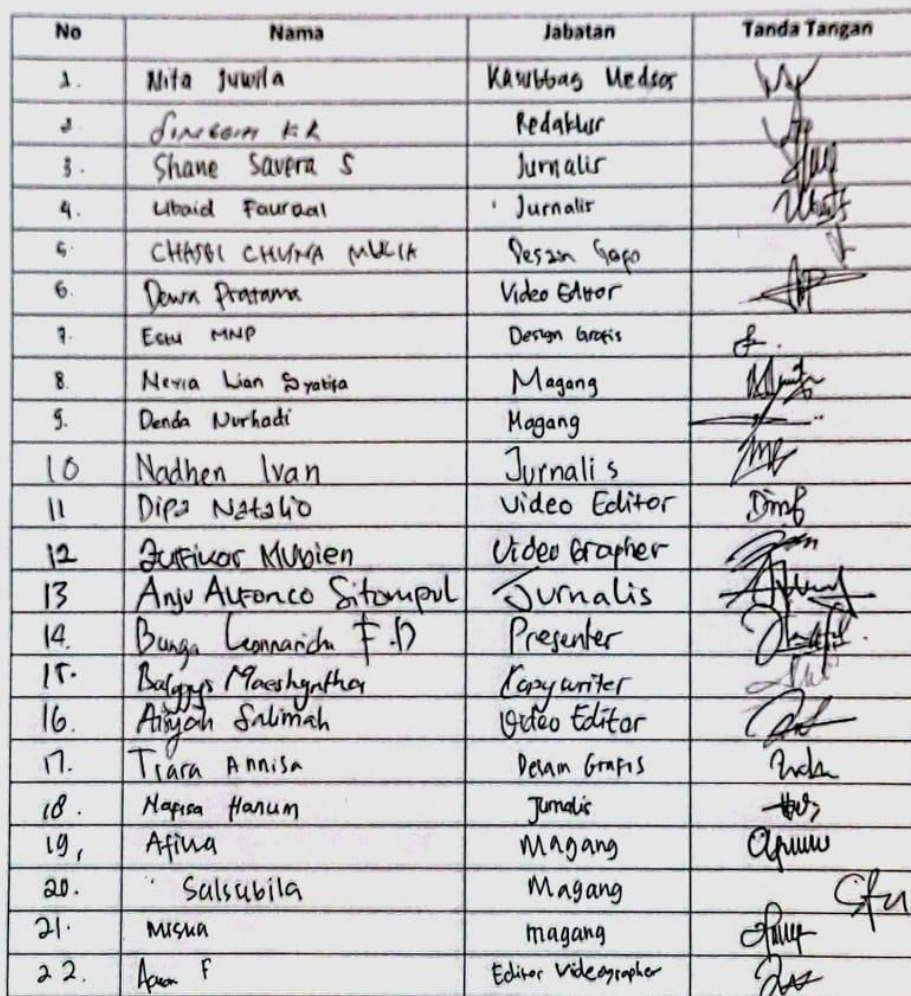 No Nama Jabatan Tanda Tangan
1. Nita Juwila Kasubbag Medsos
2. K R Redaktur
3. Shane Savera S Jurnalis
4. Ubaid Jurnalis
5. CHASBI CHUSNA MULIA
6. Dewa Pratama Video Editor
7. Estu MNP Design Grafis
8. Nevia Lian Syatifa Magang
9. Denda Nurhadi Magang
10 Nadhen Ivan Jurnalis
11 Dipa Natalio Video Editor
12 Zulfikar Mubien Video Grapher
13 Anju Alfonco Sitompul Jurnalis
14. Bunga F.D Presenter
15. Copywriter
16. Aisyah Salimah Video Editor
17. Tiara Annisa Desain Grafis
18. Nafisa Hanum Jurnalis
19, Afiua Magang
20. Salsabila Magang
21. Miska magang
22. F Editor Videographer